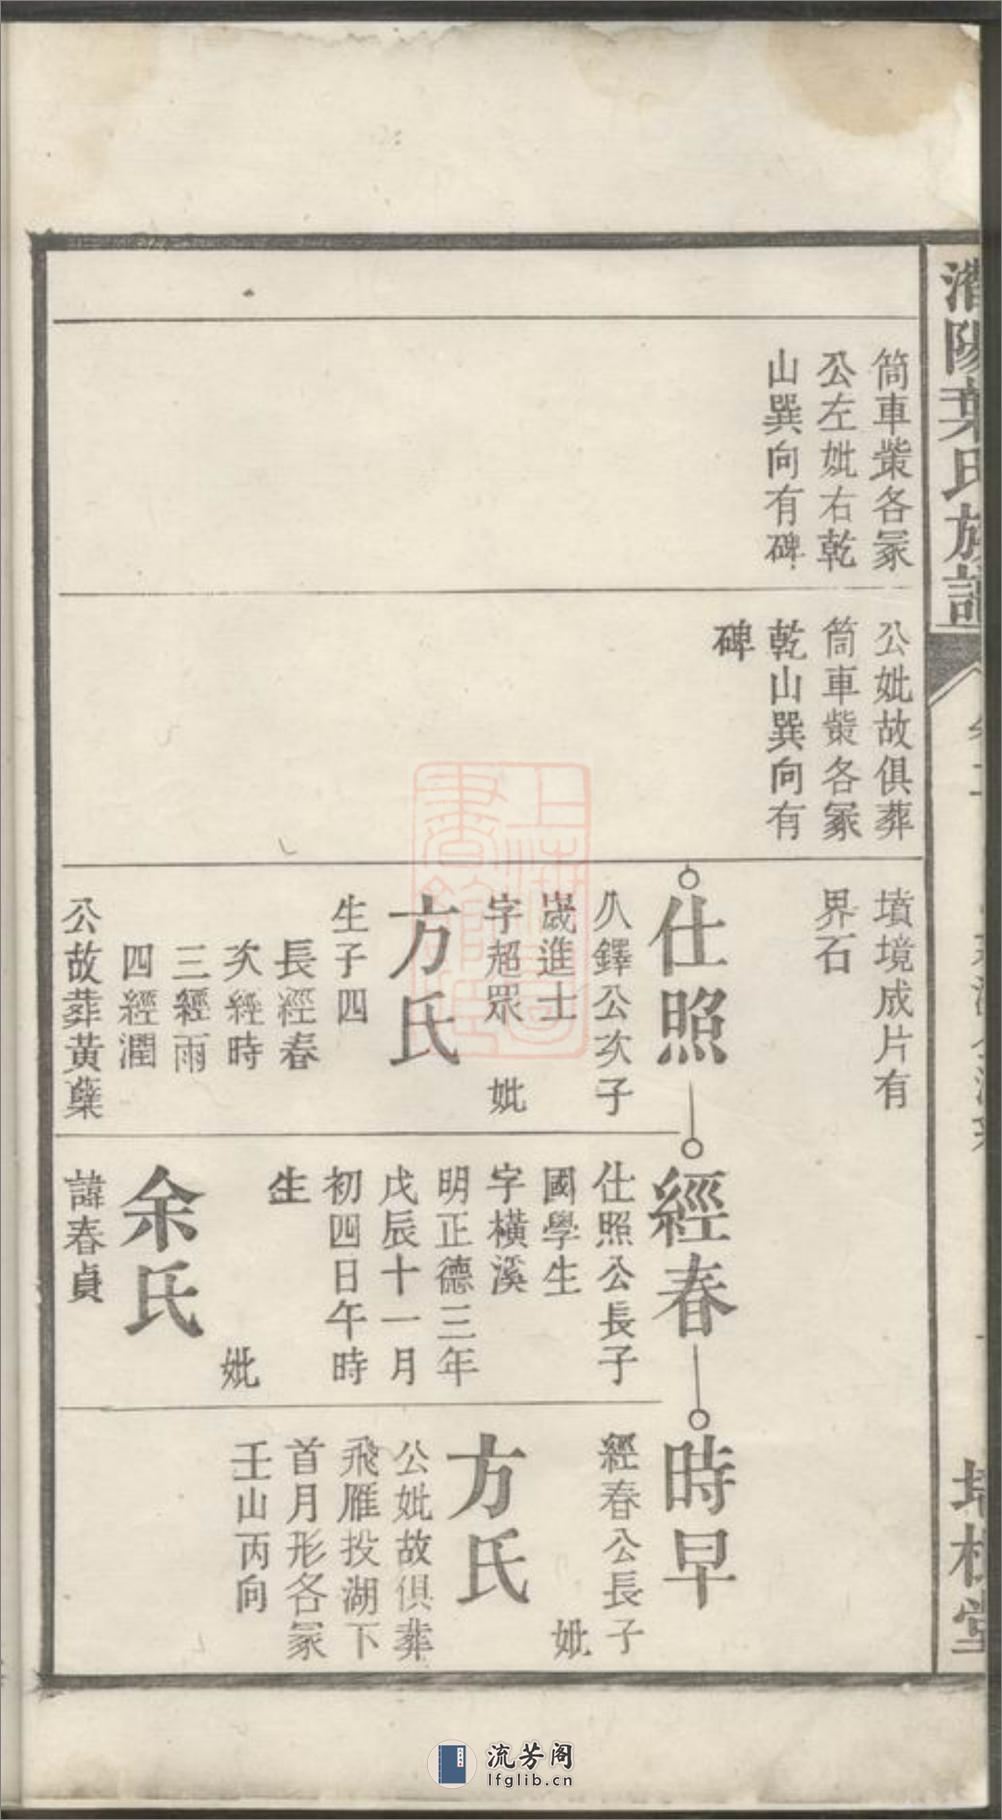 陽葉氏族譜
筒車業各冡
公左妣右乾
山巽向有碑
公妣故俱葬
筒車業各冡
乾山巽向有
碑
墳境成片有
界石
仕照
公次子
歲進士
字超眾 妣
方氏
生子四
長經春
次經時
三經雨
四經潤
公故葬黃蘗
經春
仕照公長子
國學生
字橫溪
明正德三年
戊辰十一月
初四日午時
生
妣
余氏
諱春貞
時早
經春公長子
妣
方氏
公妣故俱葬
飛雁投湖下
首月形各冡
壬山丙向
上海圖書館藏
流芳阁
lfglib.cn